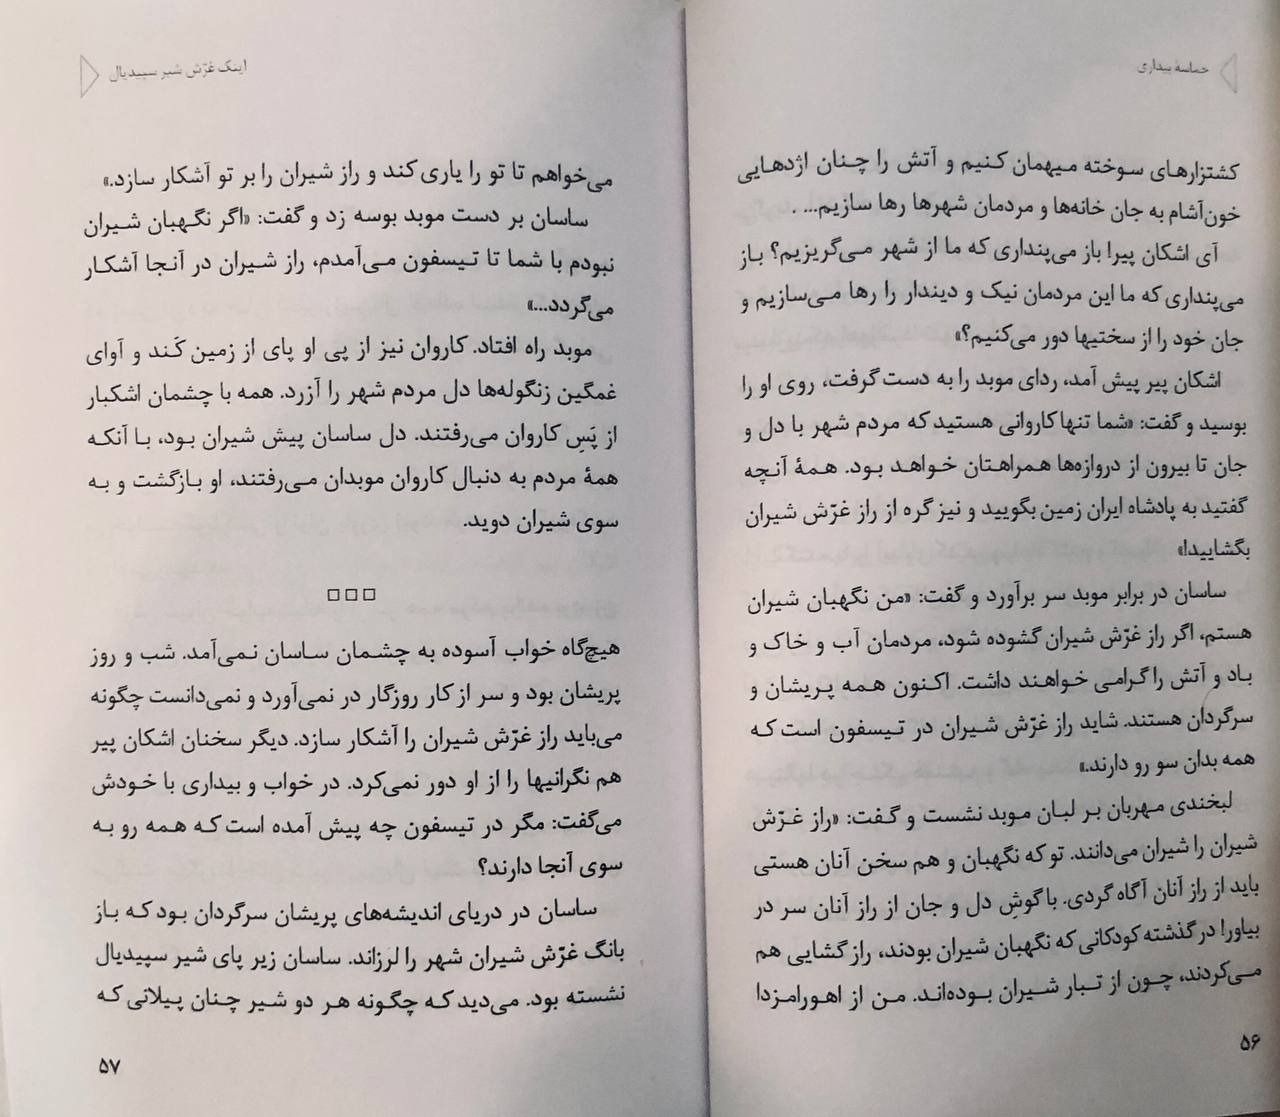 حماسهٔ بیداری
کشتزارهای سوخته میهمان کنیم و آتش را چنان اژدهایی
خون‌آشام به جان خانه‌ها و مردمان شهرها رها سازیم... .
آی اشکان پیر! باز می‌پنداری که ما از شهر می‌گریزیم؟ باز
می‌پنداری که ما این مردمان نیک و دیندار را رها می‌سازیم و
جان خود را از سختیها دور می‌کنیم؟»
اشکان پیر پیش آمد، ردای موبد را به دست گرفت، روی او را
بوسید و گفت: «شما تنها کاروانی هستید که مردم شهر با دل و
جان تا بیرون از دروازه‌ها همراهتان خواهد بود. همهٔ آنچه
گفتید به پادشاه ایران زمین بگویید و نیز گره از راز غرّش شیران
بگشایید!»
ساسان در برابر موبد سر برآورد و گفت: «من نگهبان شیران
هستم، اگر راز غرّش شیران گشوده شود، مردمان آب و خاک و
باد و آتش را گرامی خواهند داشت. اکنون همه پریشان و
سرگردان هستند. شاید راز غرّش شیران در تیسفون است که
همه بدان سو رو دارند.»
لبخندی مهربان بر لبان موبد نشست و گفت: «راز غرّش
شیران را شیران می‌دانند. تو که نگهبان و هم سخن آنان هستی
باید از راز آنان آگاه گردی. با گوشِ دل و جان از راز آنان سر در
بیاور! در گذشته کودکانی که نگهبان شیران بودند، راز گشایی هم
می‌کردند، چون از تبار شیران بوده‌اند. من از اهورامزدا
۵۶
اینک غرّش شیر سپیدیال
می‌خواهم تا تو را یاری کند و راز شیران را بر تو آشکار سازد.»
ساسان بر دست موبد بوسه زد و گفت: «اگر نگهبان شیران
نبودم با شما تا تیسفون می‌آمدم، راز شیران در آنجا آشکار
می‌گردد...»
موبد راه افتاد. کاروان نیز از پی او پای از زمین کَند و آوای
غمگین زنگوله‌ها دل مردم شهر را آزرد. همه با چشمان اشکبار
از پَسِ کاروان می‌رفتند. دل ساسان پیش شیران بود، با آنکه
همهٔ مردم به دنبال کاروان موبدان می‌رفتند، او بازگشت و به
سوی شیران دوید.
□□□
هیچ‌گاه خواب آسوده به چشمان ساسان نمی‌آمد. شب و روز
پریشان بود و سر از کار روزگار در نمی‌آورد و نمی‌دانست چگونه
می‌باید راز غرّش شیران را آشکار سازد. دیگر سخنان اشکان پیر
هم نگرانیها را از او دور نمی‌کرد. در خواب و بیداری با خودش
می‌گفت: مگر در تیسفون چه پیش آمده است که همه رو به
سوی آنجا دارند؟
ساسان در دریای اندیشه‌های پریشان سرگردان بود که باز
بانگ غرّش شیران شهر را لرزاند. ساسان زیر پای شیر سپیدیال
نشسته بود. می‌دید که چگونه هر دو شیر چنان پیلانی که
۵۷